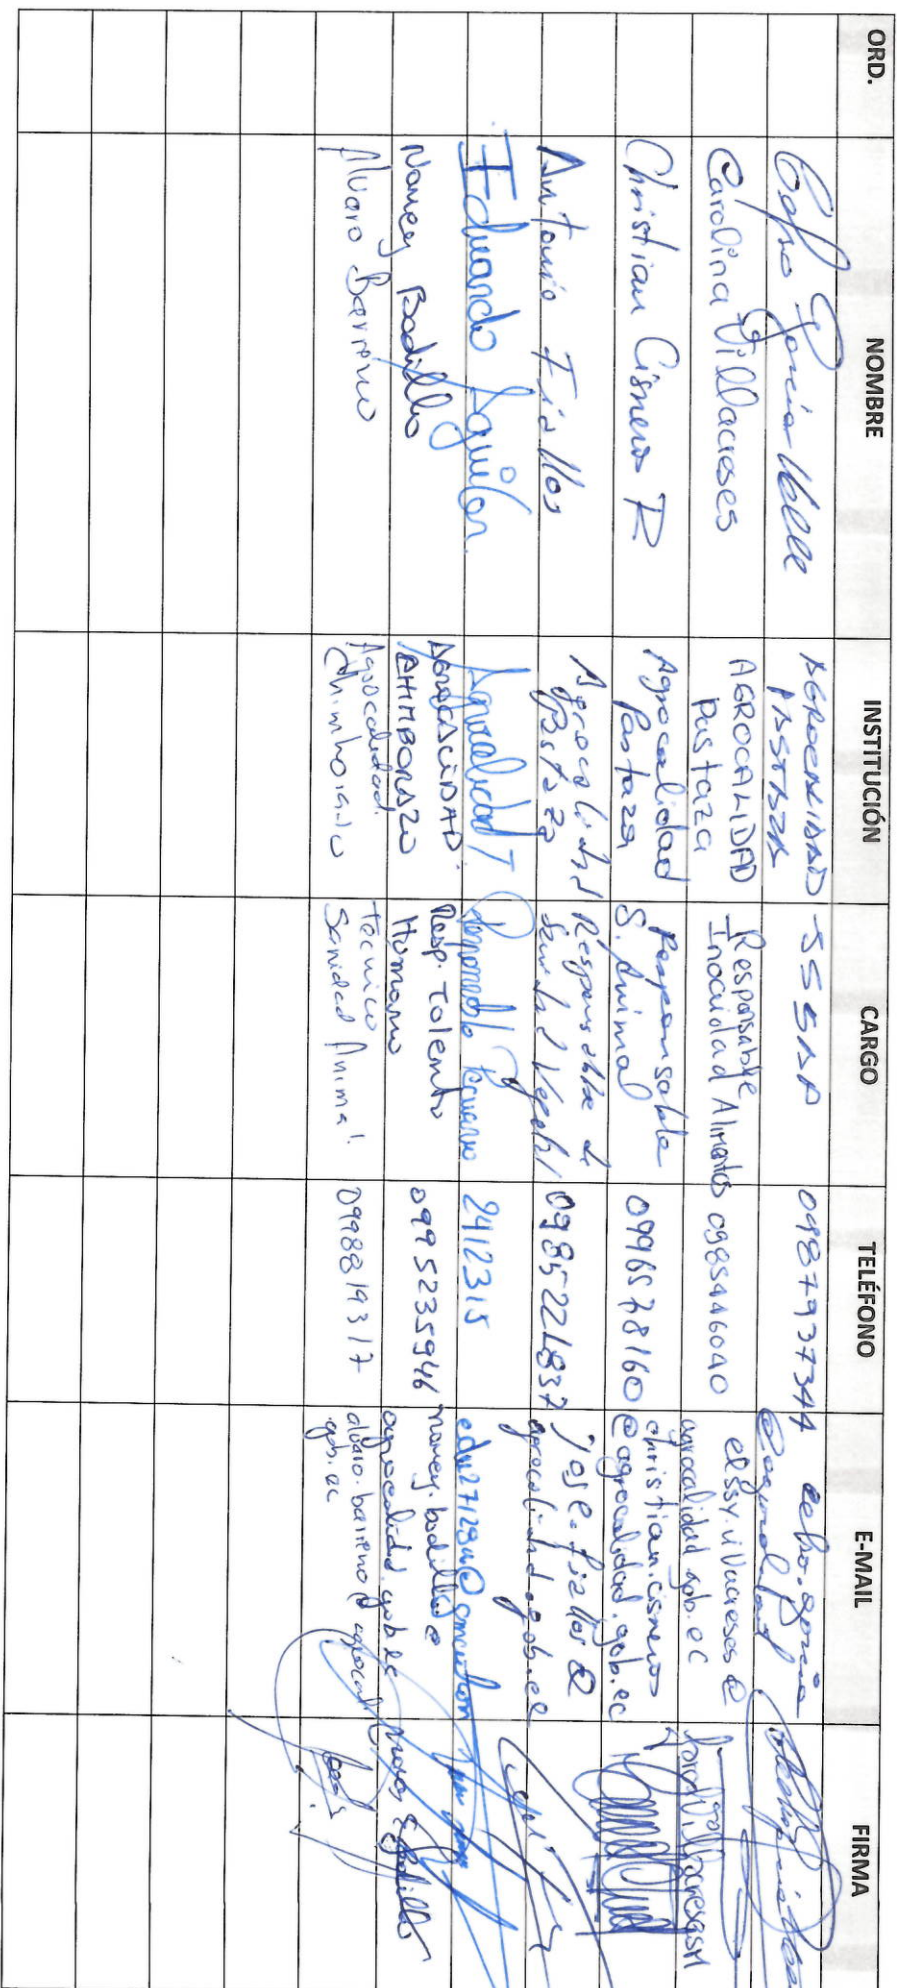 ORD. NOMBRE INSTITUCIÓN CARGO TELÉFONO E-MAIL FIRMA
García AGROCALIDAD
PASTAZA 0987937344
Carolina Villacreses AGROCALIDAD
Pastaza Responsable
Inocuidad Alimentos 0985446040 elssy.villacreses@
agrocalidad.gob.ec
Christian Cisneros R Agrocalidad
Pastaza Responsable
S. Animal 0996578160 christian.cisneros
@agrocalidad.gob.ec
Antonio Fiallos Agrocalidad
Pastaza Responsable de
Sanidad Vegetal 0985221837 jose.fiallos@
agrocalidad.gob.ec
Eduardo Aguilar Agrocalidad T 2412315
Nancy Badillo AGROCALIDAD.
CHIMBORAZO Resp. Talento
Humano 0995235946 nancy.badillo@
agrocalidad.gob.ec
Alvaro Barreno Agrocalidad
Chimborazo Técnico
Sanidad Animal. 0998819317 alvaro.barreno@agrocal
gob.ec